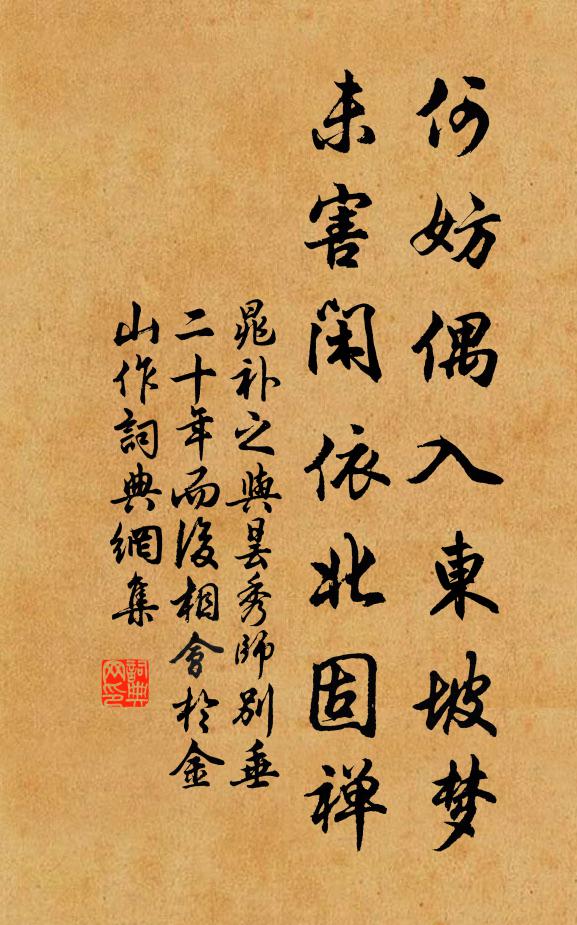 何妨偶入東坡梦
未害闲依北固禅
晁补之與昙秀師別垂
二十年而後相會於金
山作詞典網集
詞典网印